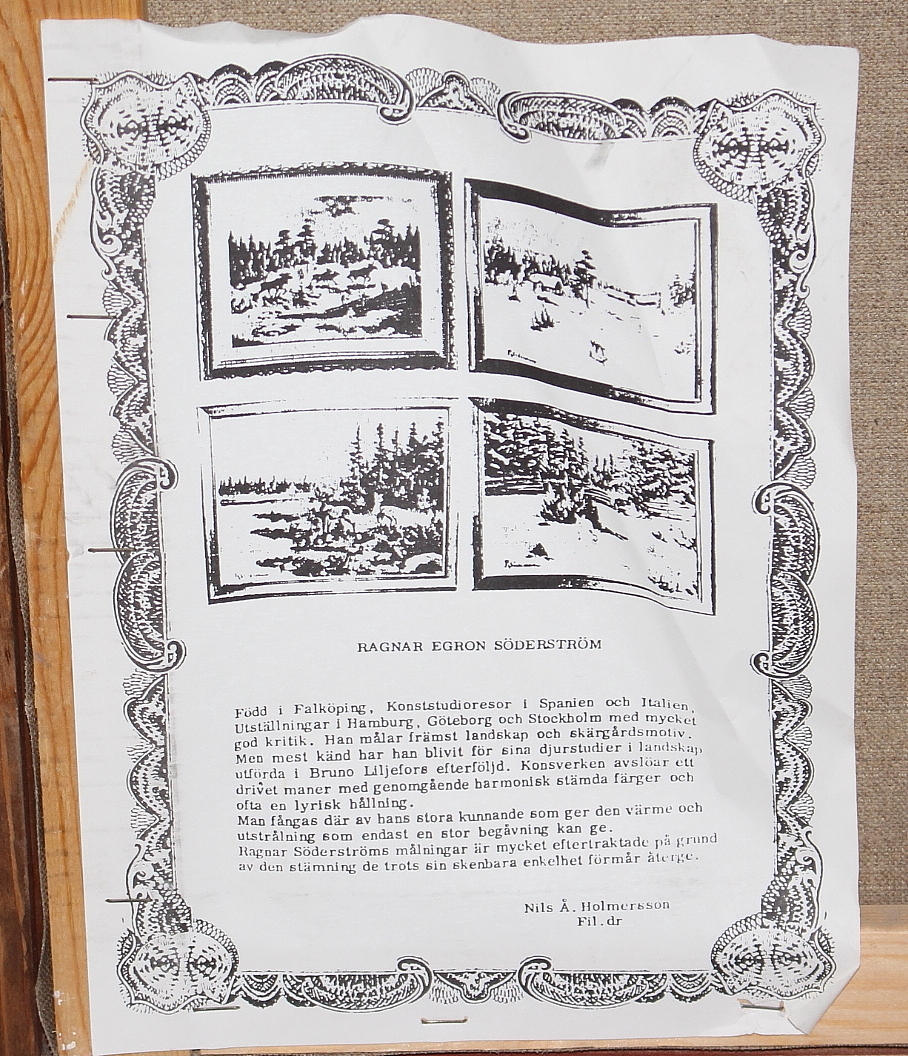 RAGNAR EGRON SÖDERSTRÖM
Född i Falköping, Konststudioresor i Spanien och Italien,
Utställningar i Hamburg, Göteborg och Stockholm med mycket
god kritik. Han målar främst landskap och skärgårdsmotiv.
Men mest känd har han blivit för sina djurstudier i landskap
utförda i Bruno Liljefors efterföljd. Konsverken avslöar ett
drivet maner med genomgående harmonisk stämda färger och
ofta en lyrisk hållning.
Man fångas där av hans stora kunnande som ger den värme och
utstrålning som endast en stor begåvning kan ge.
Ragnar Söderströms målningar är mycket eftertraktade på grund
av den stämning de trots sin skenbara enkelhet förmår återge.
Nils Å. Holmersson
Fil.dr